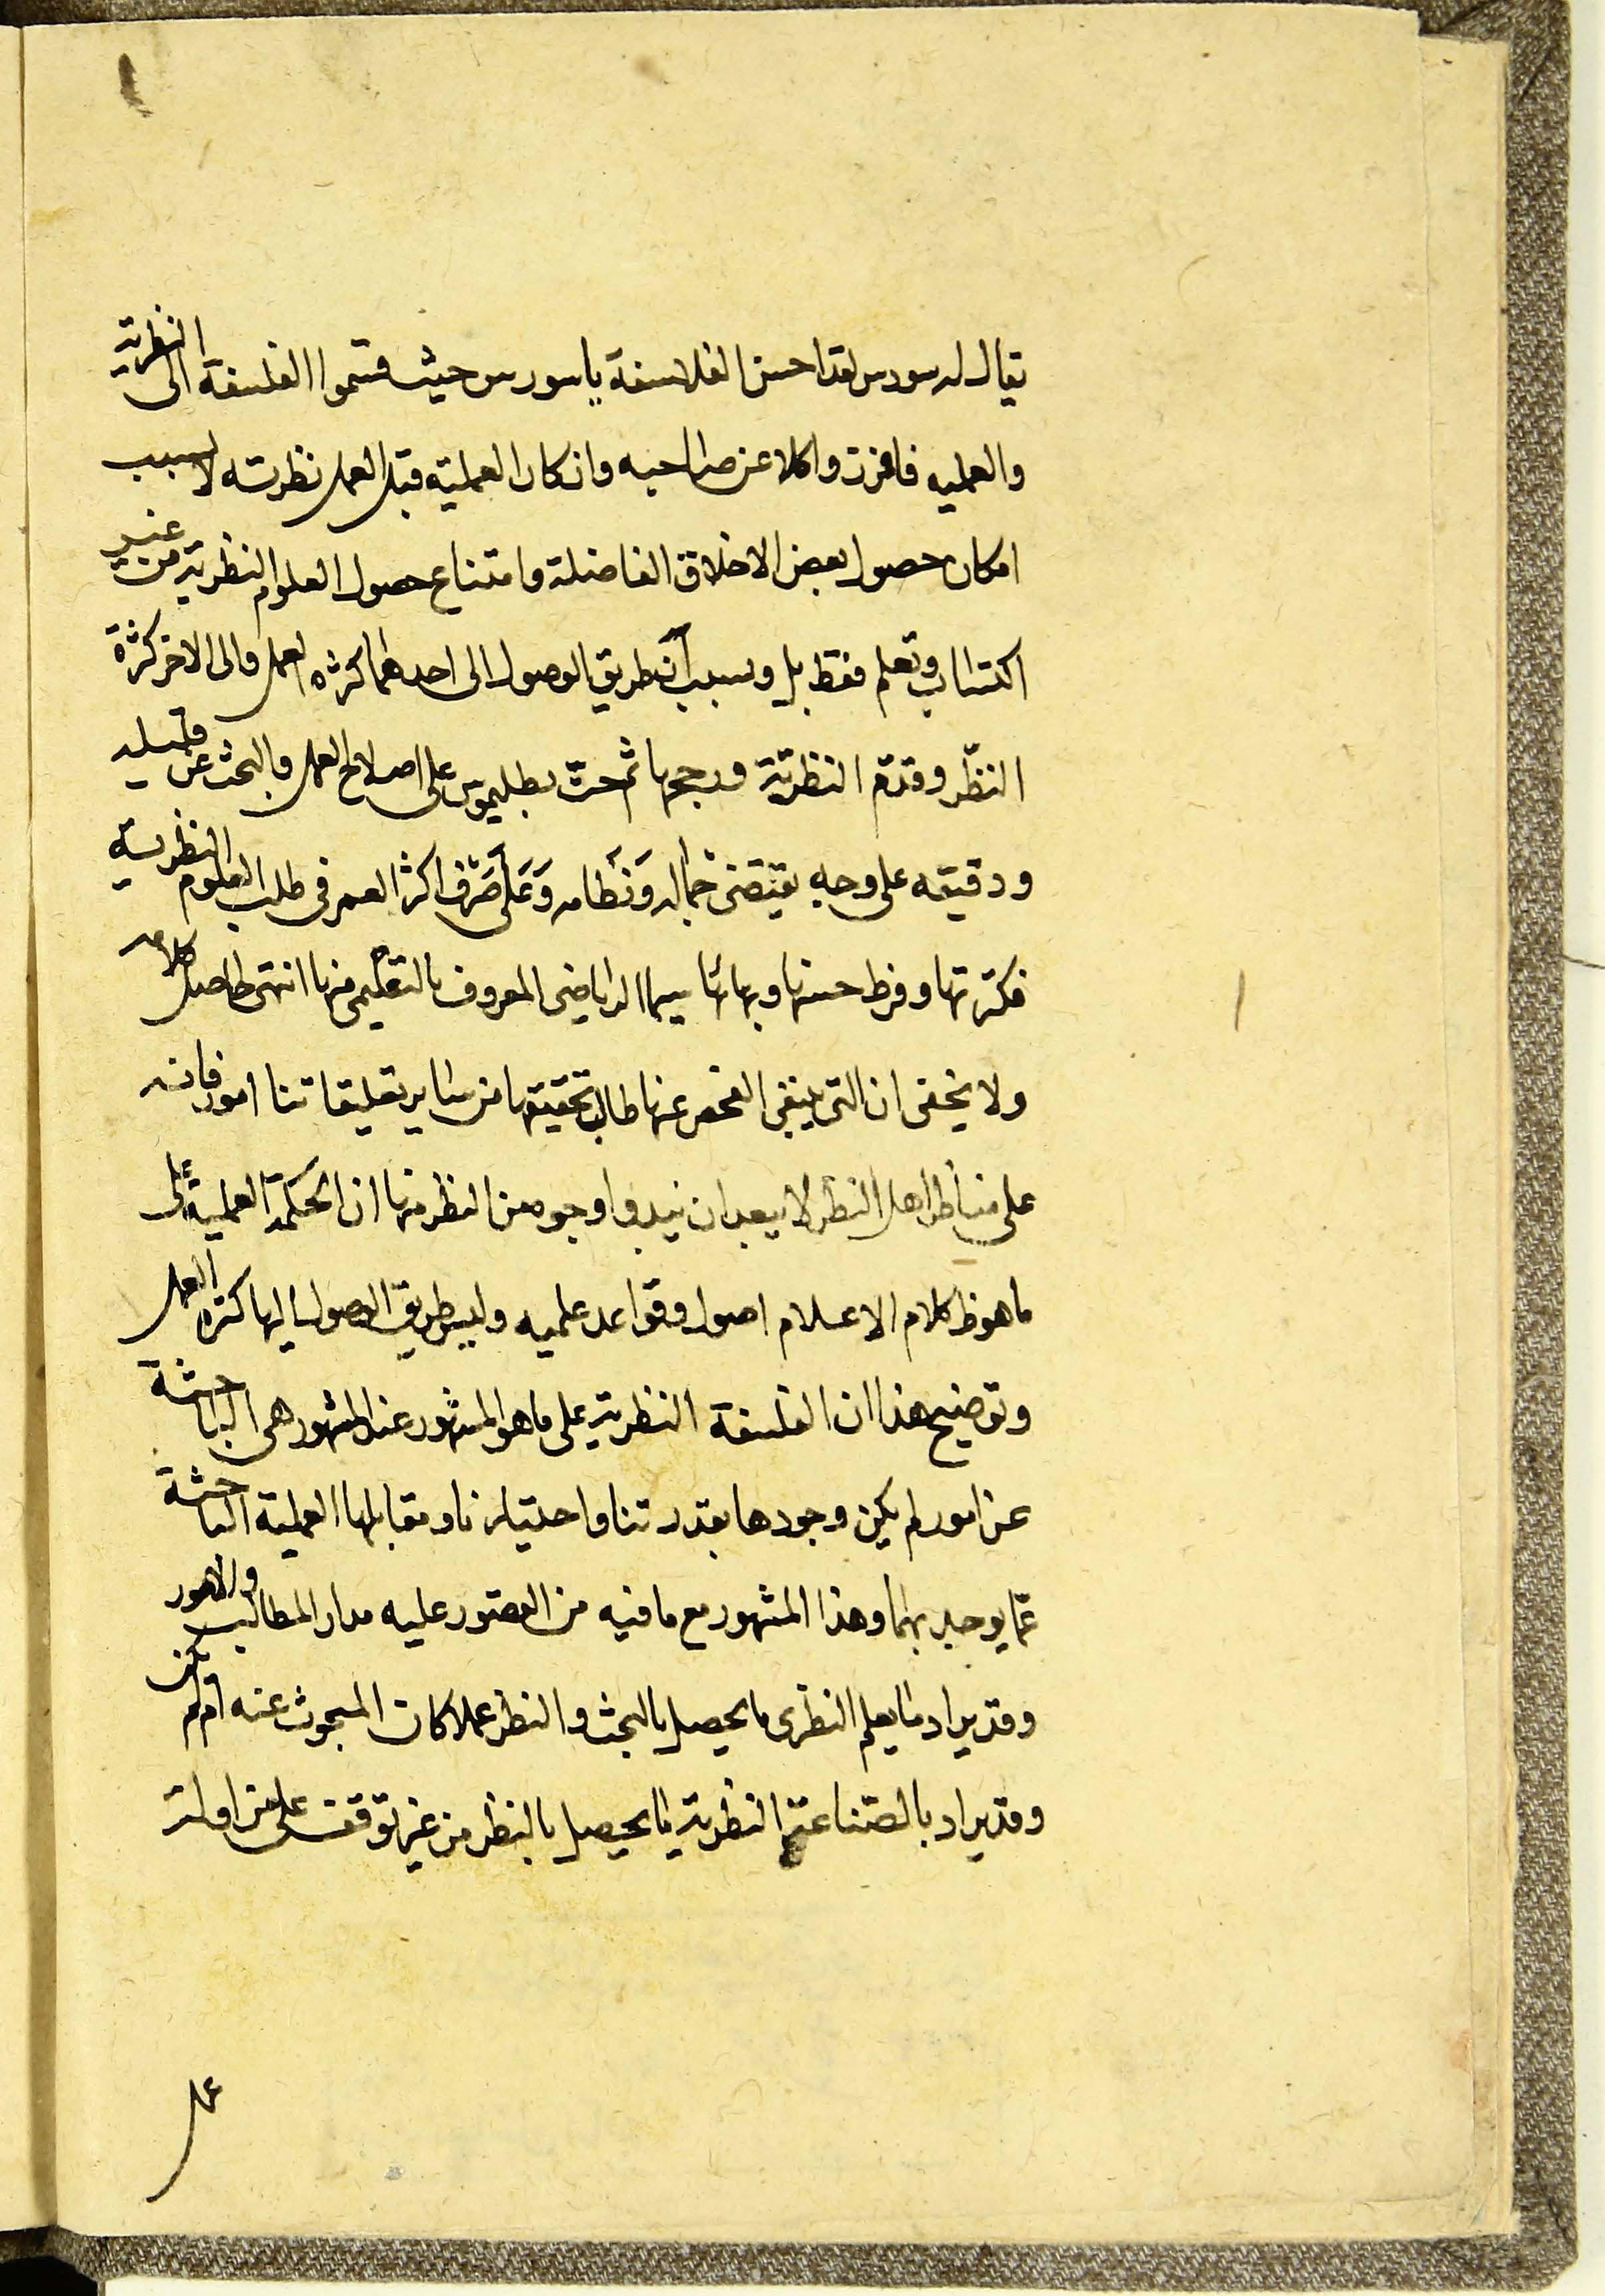 يقال له سورس لقد احسن الفلاسفة يا سورس حيث قسموا الفلسفة الى النظرية
والعملية فافرزوا كلا عن صاحبه وان كان العملية قبل العمل نظرية لا لسبب
امكان حصول بعض الاخلاق الفاضلة وامتناع حصول العلوم النظرية من غير
اكتساب وتعلم فقط بل وبسبب ان طريق الوصول الى احدهما كثرة العمل والى الاخر كثرة
النظر وقدم النظرية ورجحها ثم حث بطليموس على اصلاح العمل والبحث عن قليله
ودقيقه على وجه يقتضى جماله ونظامه وعلى صرف اكثر العمر فى طلب العلوم النظرية
فكثرتها وفرط حسنها وبهائها سيما الرياضى المعروف بالتعليمى منها انتهى حاصل كلامه
ولا يخفى ان التى ينبغى الفحص عنها طالب تحقيقها من ساير تعليقاتنا امور فانه
على مناظر اهل النظر لا يبعد ان يبدوا وجوه من النظر منها ان الحكمة العملية على
ما هو ظ كلام الاعلام اصول وقواعد علميه وليس طريق الوصول اليها كثرة العمل
وتوضيح هذا ان الفلسفة النظرية على ما هو المشهور عند المشهور هى الباحثة
عن امور لم يكن وجودها بقدرتنا واختيارنا ومقابلها العملية الباحثة
عما يوجد بهما وهذا المشهور مع ما فيه من القصور عليه مدار المطالب والامور
وقد يراد بالعلم النظرى ما يحصل بالبحث والنظر عملا كان المبحوث عنه ام لم يكن
وقد يراد بالصناعة النظرية ما يحصل بالنظر من غير توقف على مزاولة
عمل